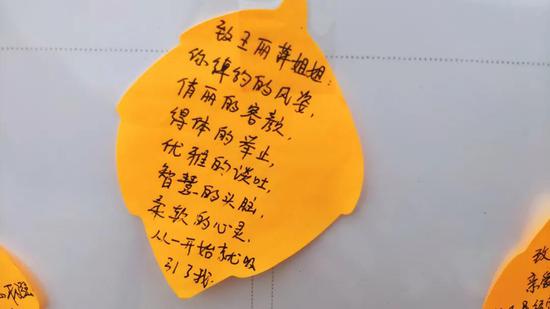 致王丽萍姐姐：
你绰约的风姿，
俏丽的容教，
得体的举止，
优雅的谈吐，
智慧的头脑，
柔软的心灵，
从一开始就吸
引了我.
致
亲爱